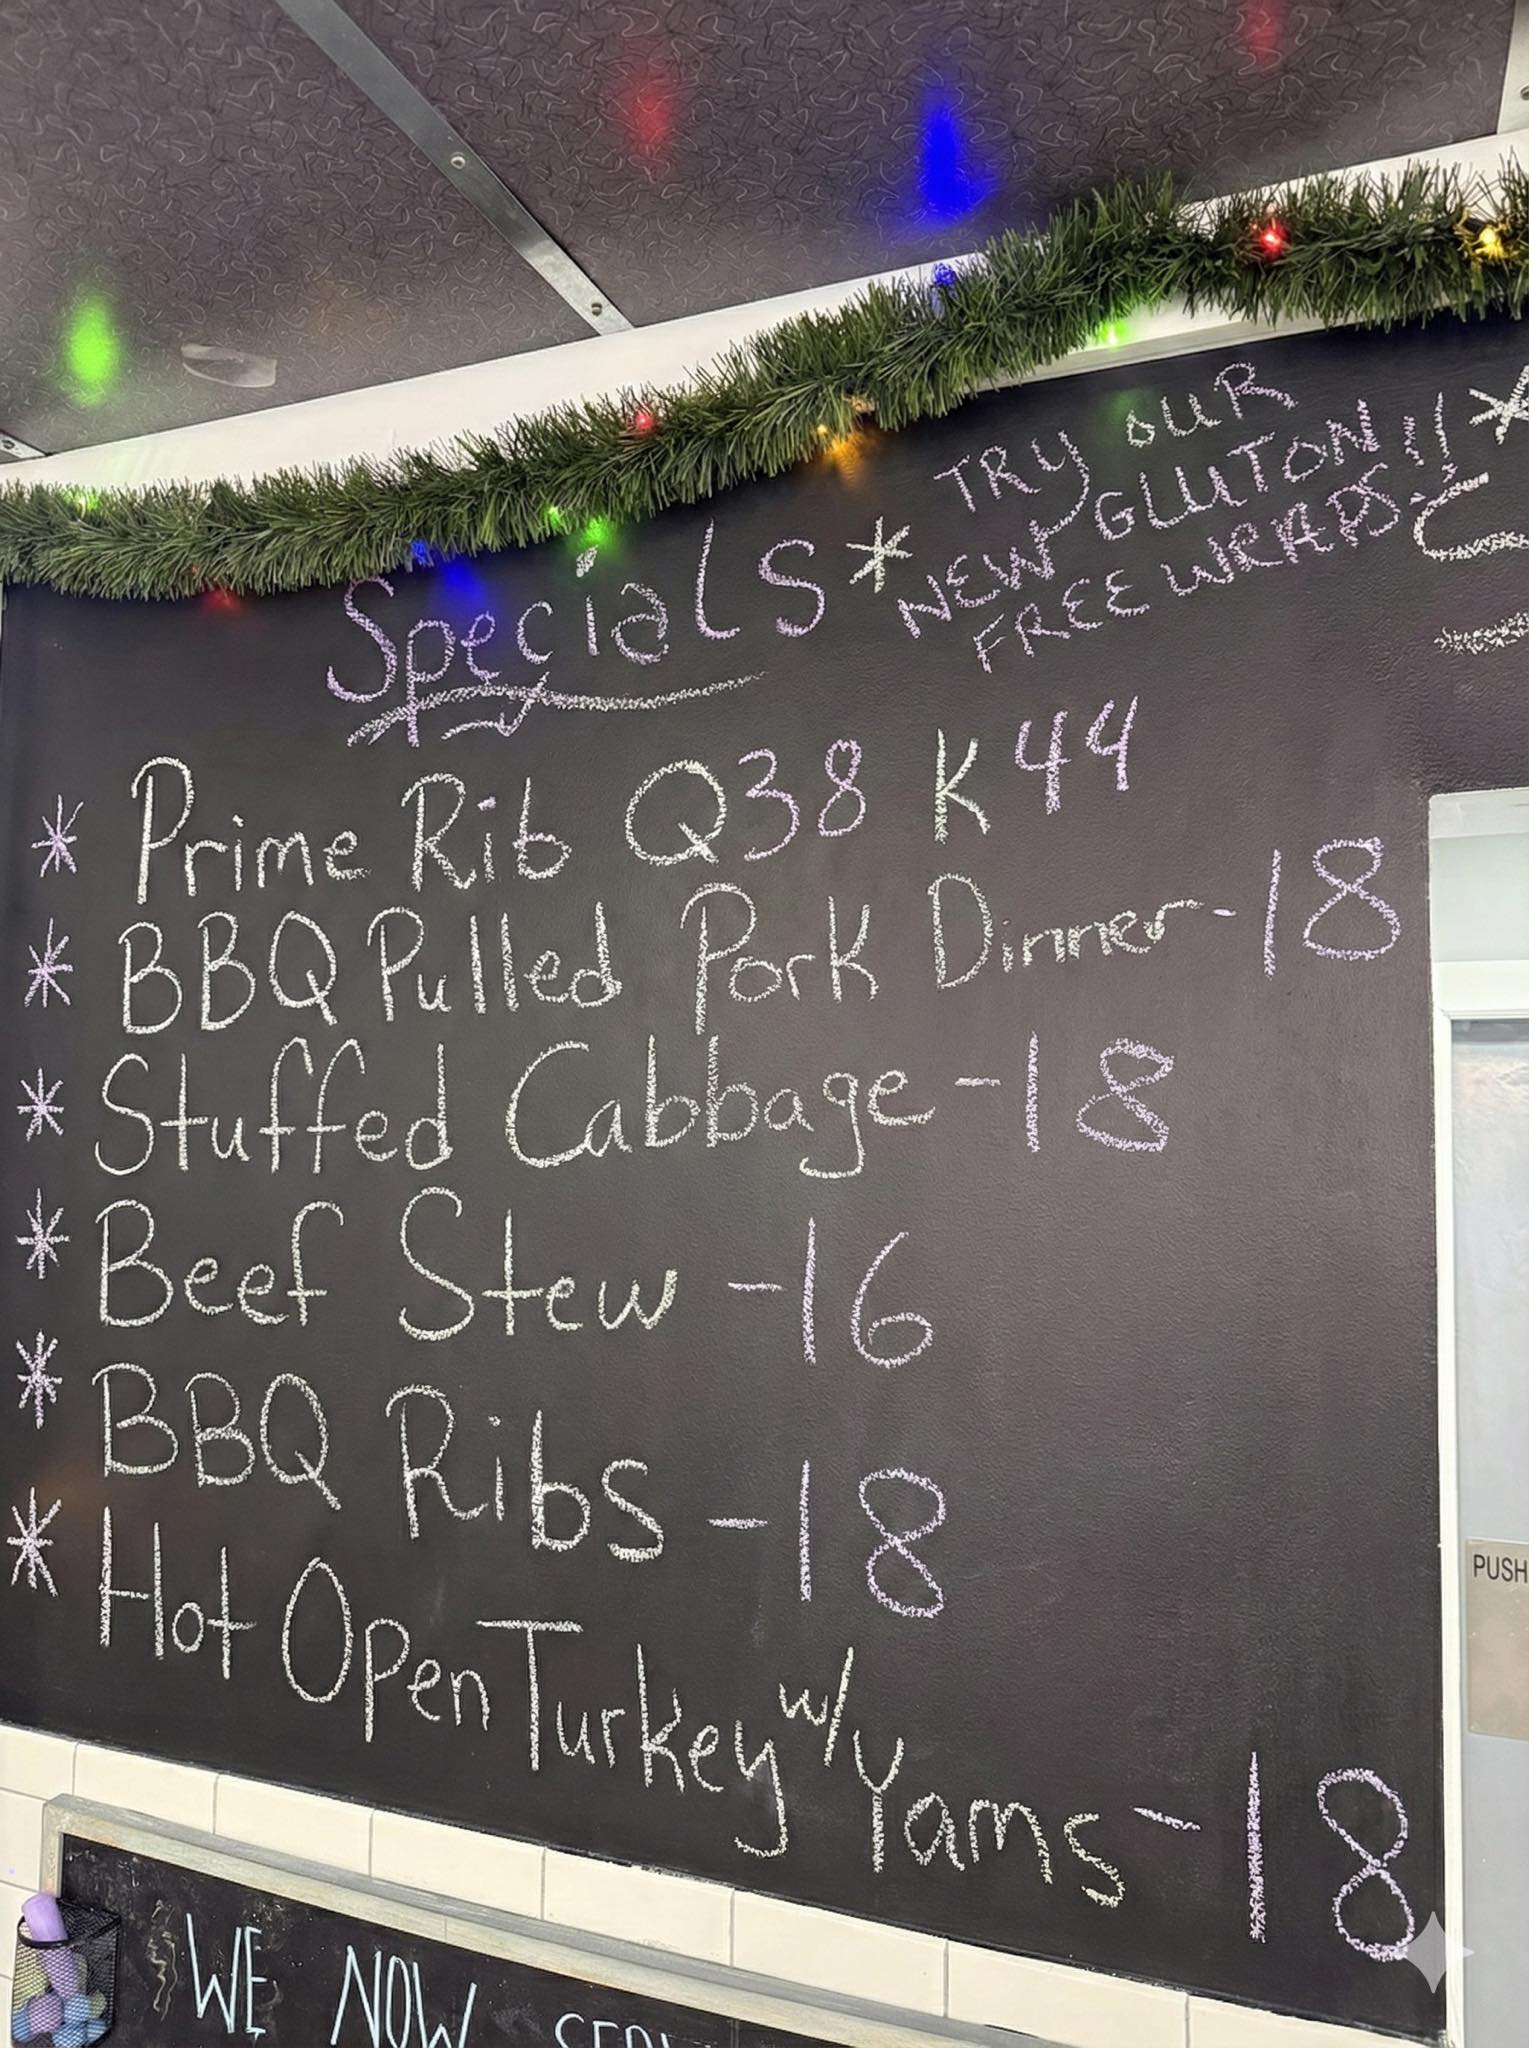 Specials
* TRY OUR
NEW GLUTON!!
FREE WRAPS!
* Prime Rib Q38 K44
* BBQ Pulled Pork Dinner - 18
* Stuffed Cabbage - 18
* Beef Stew - 16
* BBQ Ribs - 18
* Hot Open Turkey w/ Yams - 18
PUSH
WE NOW